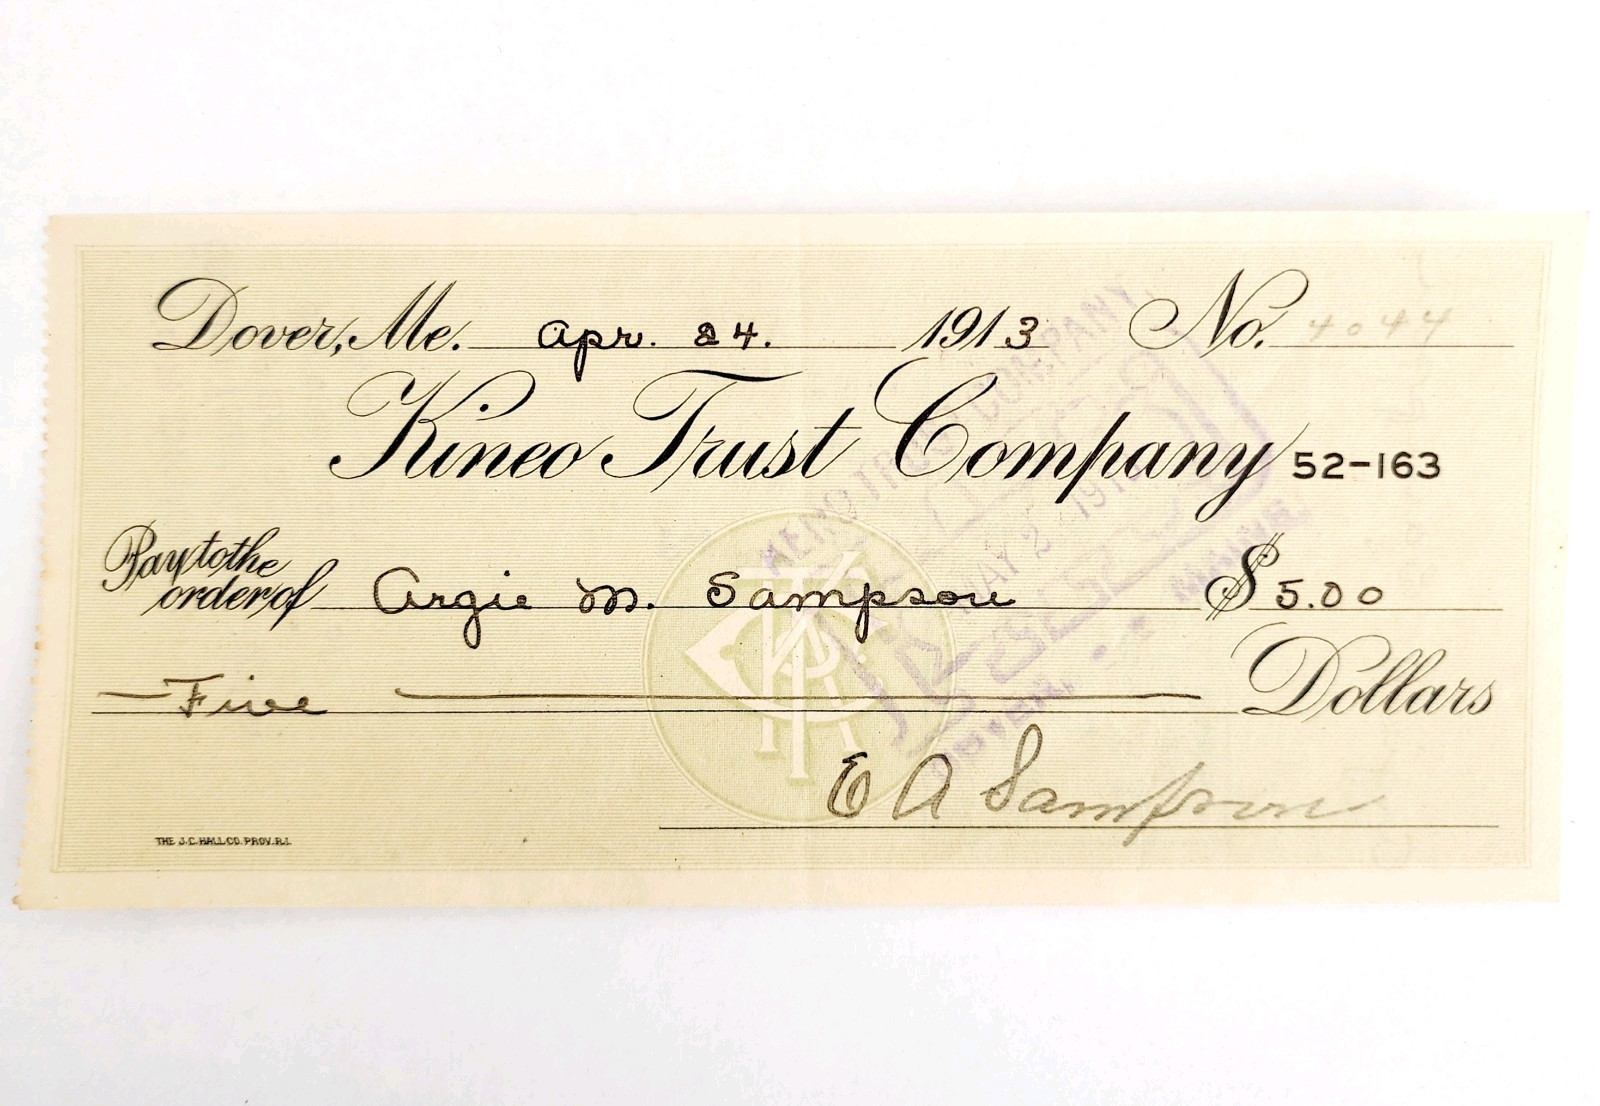 Dover, Me. Apr. 24. 1913 No. 4044
Kineo Trust Company 52-163
Pay to the order of Argie M. Sampson $ 5.00
Five Dollars
E A Sampson
THE J.C. HALL CO. PROV. R.I.
KINEO TRUST COMPANY
MAY 2 191
DOVER, MAINE